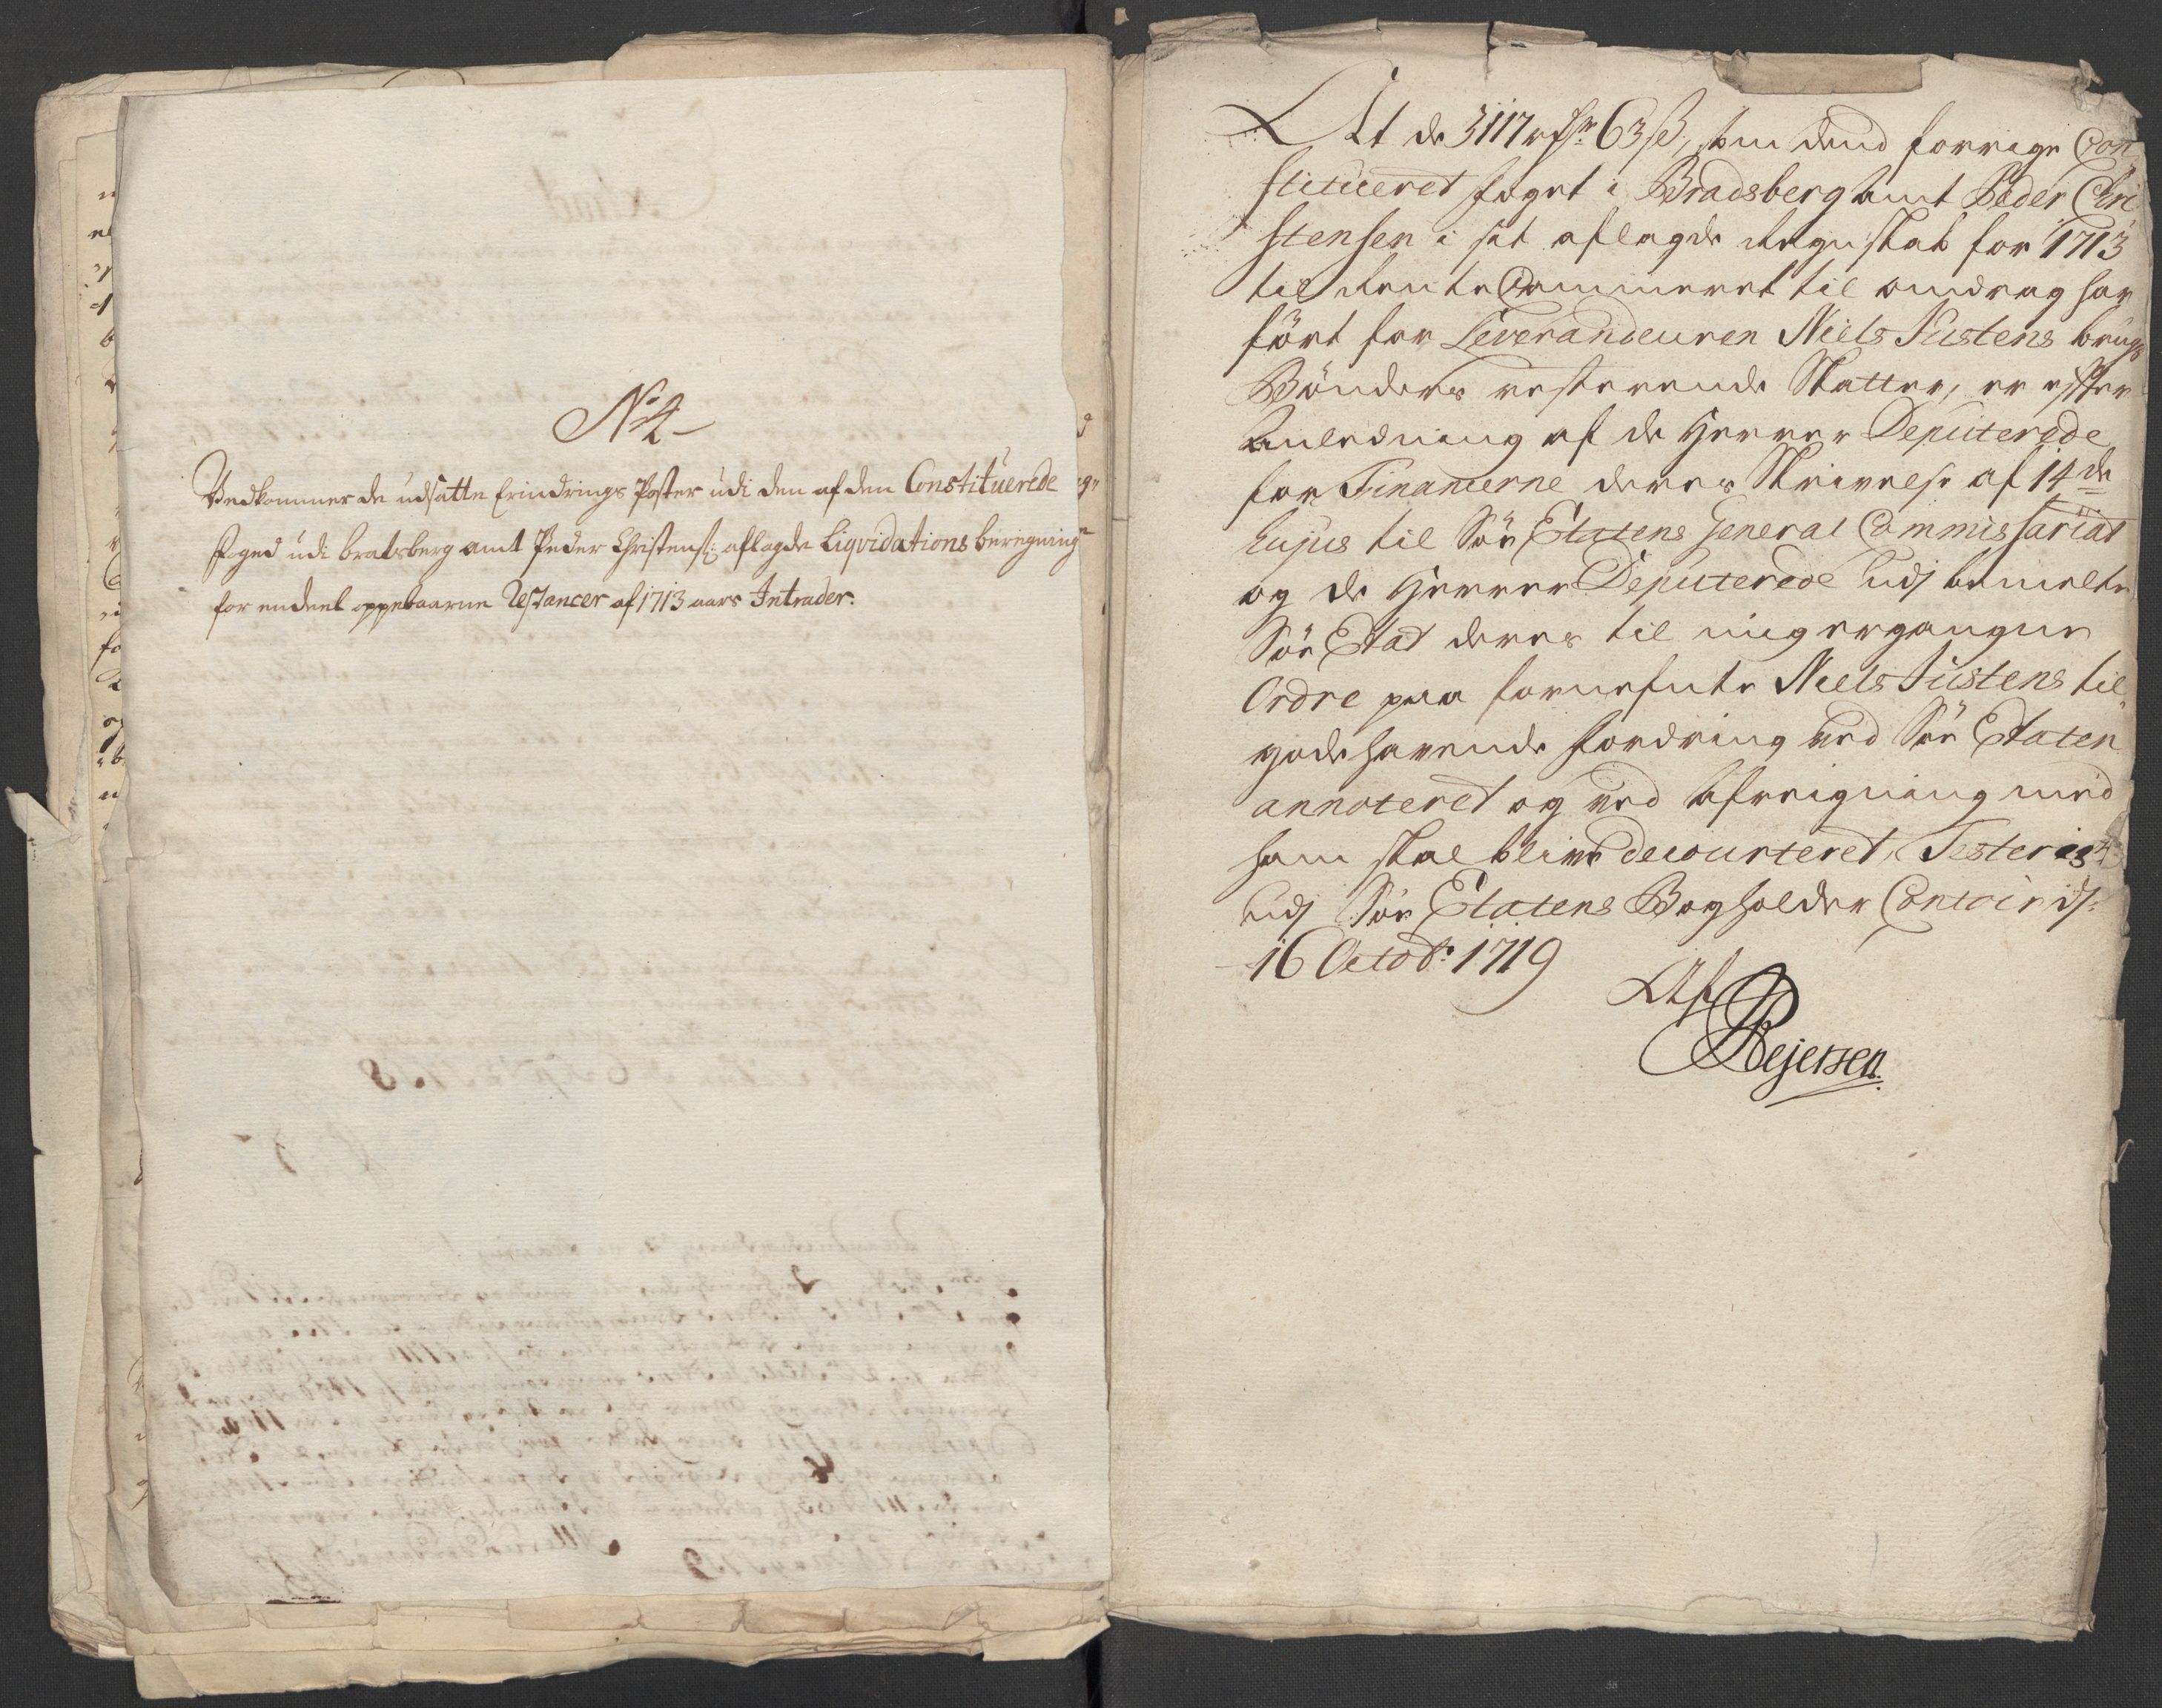 No 4
Vedkommer de udsatte Erindrings Poster udi den af den Constituerede
Foged udi bratsberg amt Peder Christens: aflagde Liqvidations beregning
for endeel oppebaarne Restancer af 1713 aars Intrader.
At de 3117 rdr 63 s, som dend forrige Con
stitueret foget i Bradsberg amt Peder Chri
stensen i sit aflagde Regnskab for 1713
til Rente Cammeret til omdrag har
ført for Leverandeuren Niels Justens brugs
Bønders resterende Skatter, er efter
anledning af de Herrer Deputerede
for Financerne deres Skrivelse af 14de
hujus til Søe Etatens General Commissariat
og de Herrer Deputerede udj bemelte
Søe Etat deres til mig ergangne
Ordre paa fornefnte Niels Justens til
godehavende fordring ved Søe Etaten
annoteret og ved afreigning med
ham skal blive decourteret, Testeris
udj Søe Etatens Bogholder Contoir d:
16 Octobr: 1719
Af
Rejersen.